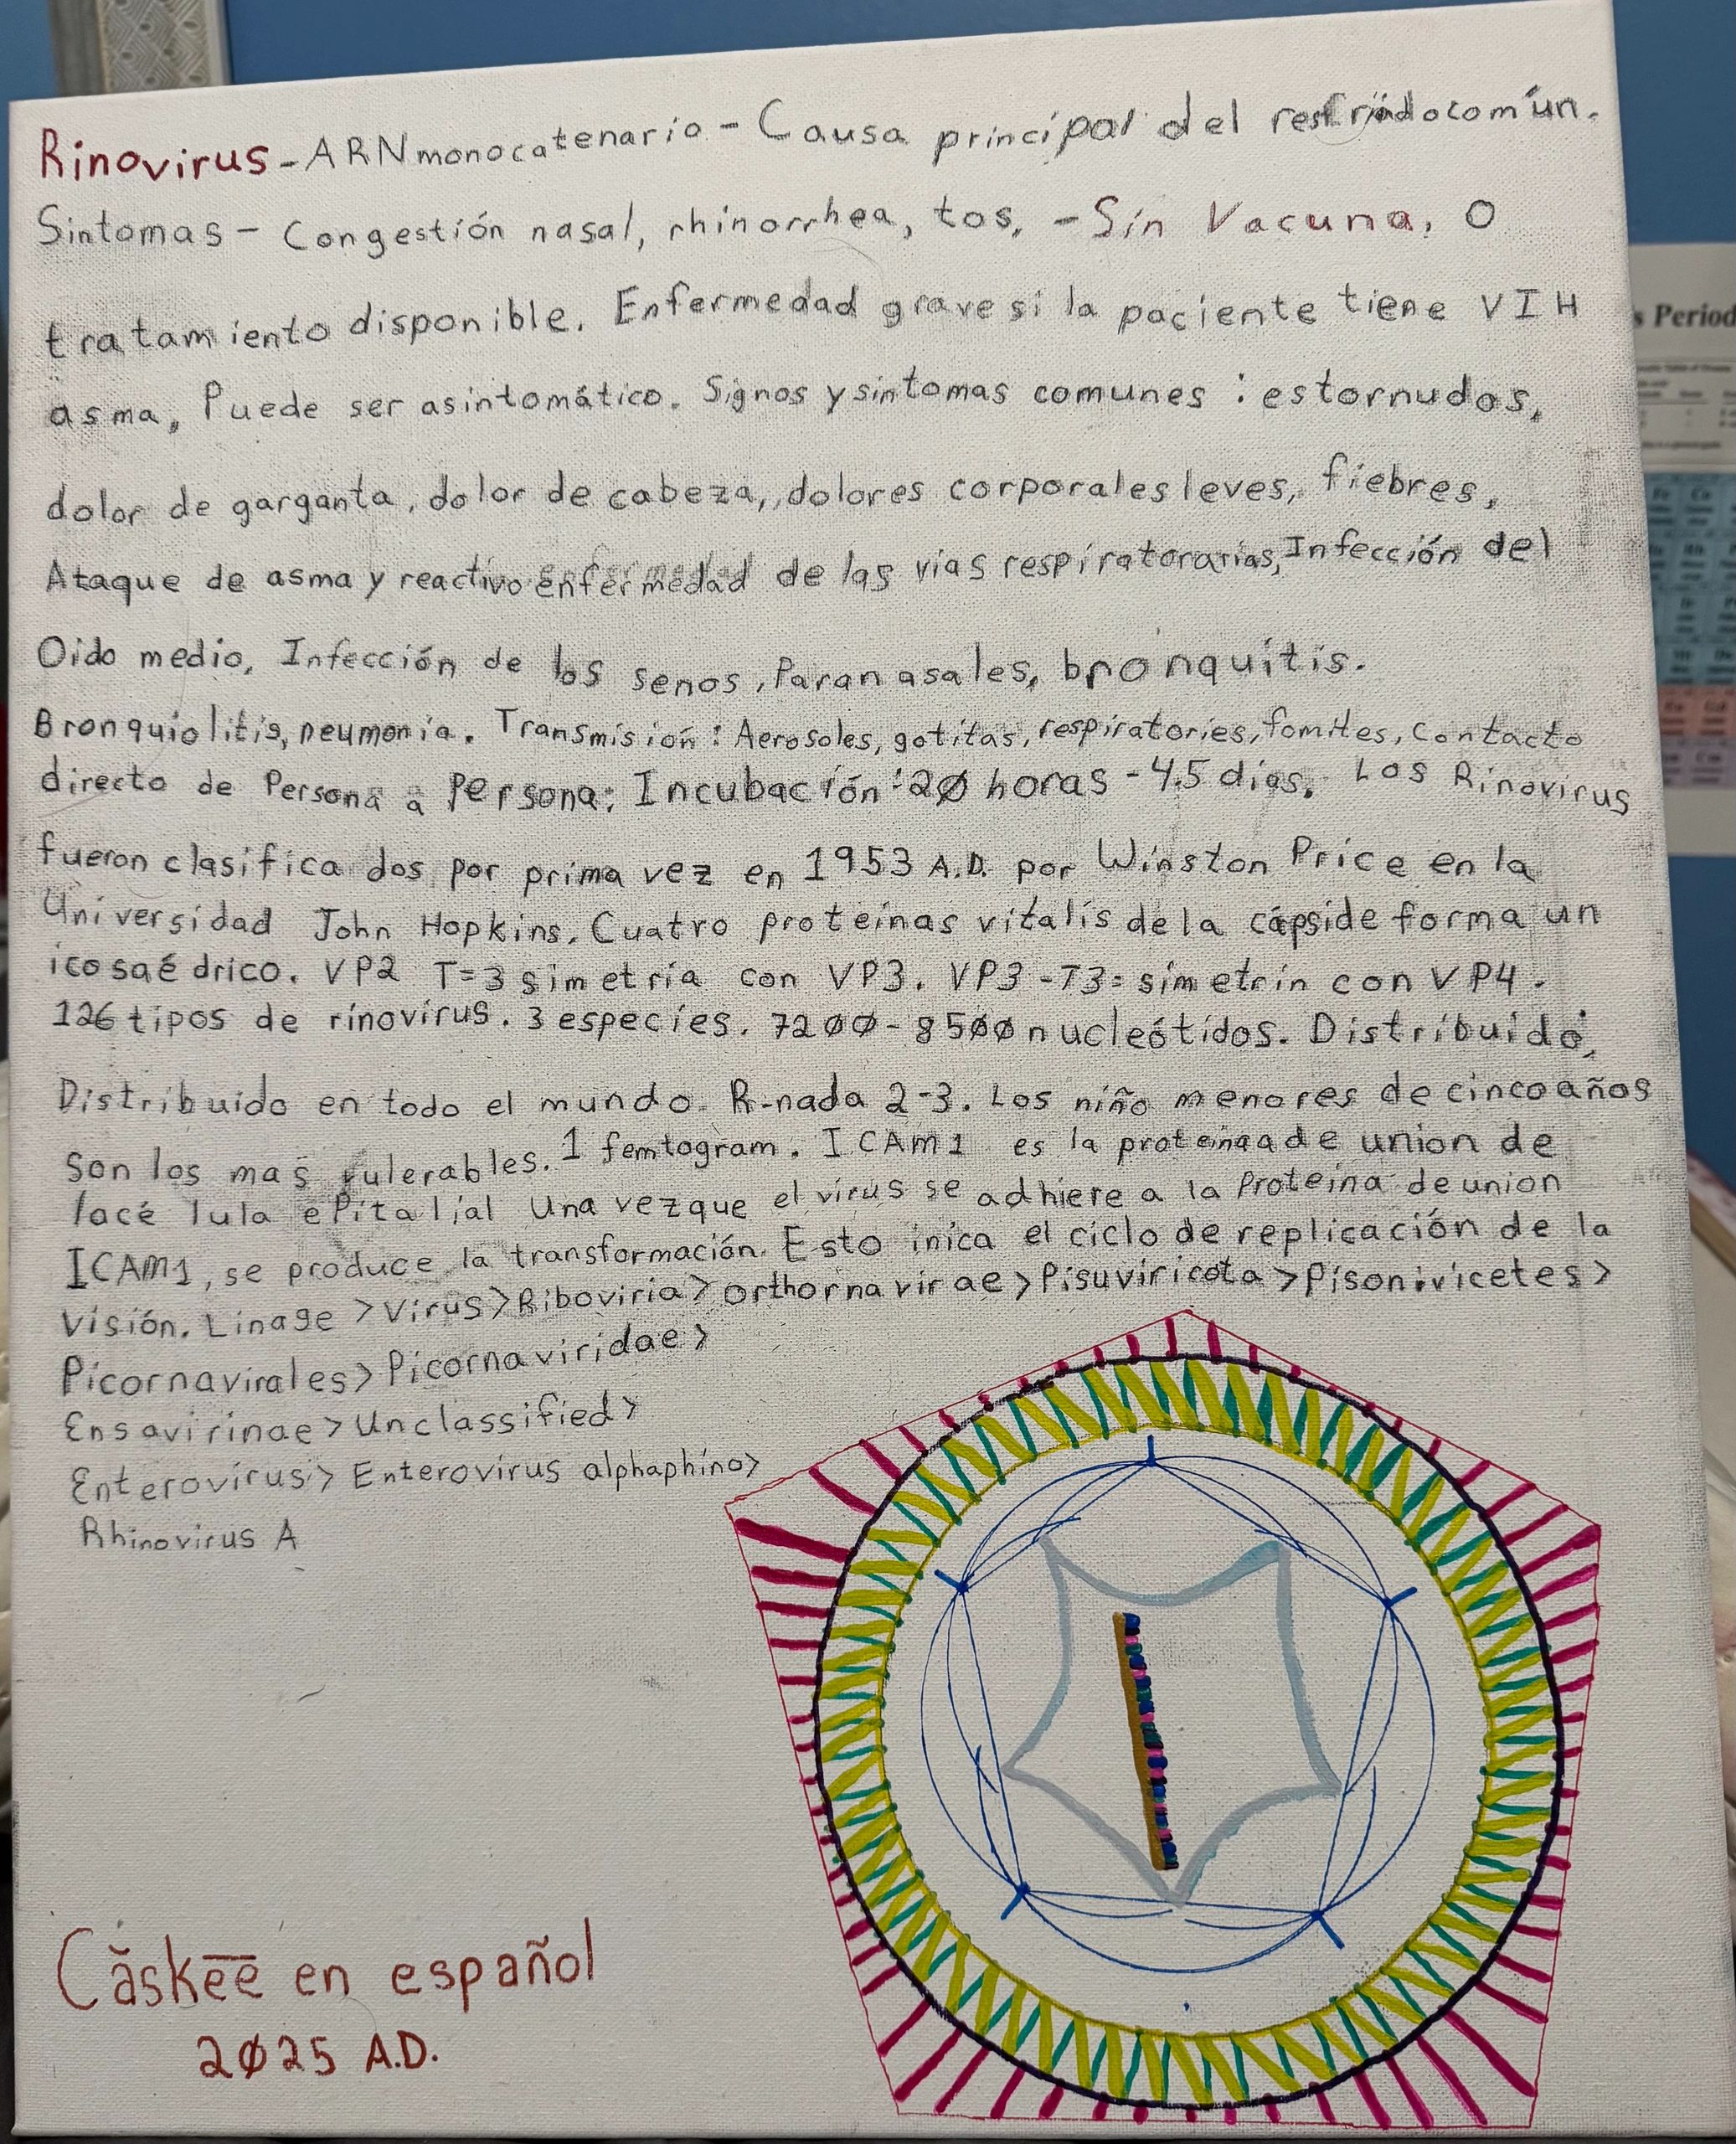 Rinovirus - ARN monocatenario - Causa principal del resfriado común.
Sintomas - Congestión nasal, rhinorrhea, tos, - Sin Vacuna, O
tratamiento disponible. Enfermedad grave si la paciente tiene VIH
asma, Puede ser asintomático. Signos y sintomas comunes : estornudos,
dolor de garganta, dolor de cabeza,, dolores corporales leves, fiebres,
Ataque de asma y reactivo enfermedad de las vias respiratorarias, Infección del
Oido medio, Infección de los senos, Paranasales, bronquitis.
Bronquiolitis, neumonia. Transmisión : Aerosoles, gotitas, respiratories, fomites, Contacto
directo de Persona a Persona: Incubación : 2∅ horas - 4.5 dias. Los Rinovirus
fueron clasificados por prima vez en 1953 A.D. por Winston Price en la
Universidad John Hopkins. Cuatro proteinas vitalis de la cápside forma un
icosaédrico. VP2 T=3 simetria con VP3. VP3 -T3= simetrin con VP4.
126 tipos de rinovirus. 3 especies. 72∅∅ - 85∅∅ nucleótidos. Distribuido,
Distribuido en todo el mundo. R-nada 2-3. Los niño menores de cinco años
son los mas vulerables. 1 femtogram. ICAM1 es la proteinaa de union de
lacé lula epitalial Una vez que el virus se adhiere a la Proteina de union
ICAM1, se produce la transformación. Esto inica el ciclo de replicación de la
visión. Linage > Virus > Riboviria > Orthornavirae > Pisuviricota > Pisonivicetes >
Picornavirales > Picornaviridae >
Ensavirinae > Unclassified >
Enterovirus > Enterovirus alphaphino >
Rhinovirus A
Căskēē en español
2∅25 A.D.
s Period